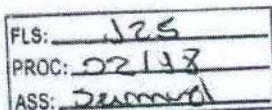 FLS: 125
PROC: 02118
ASS: